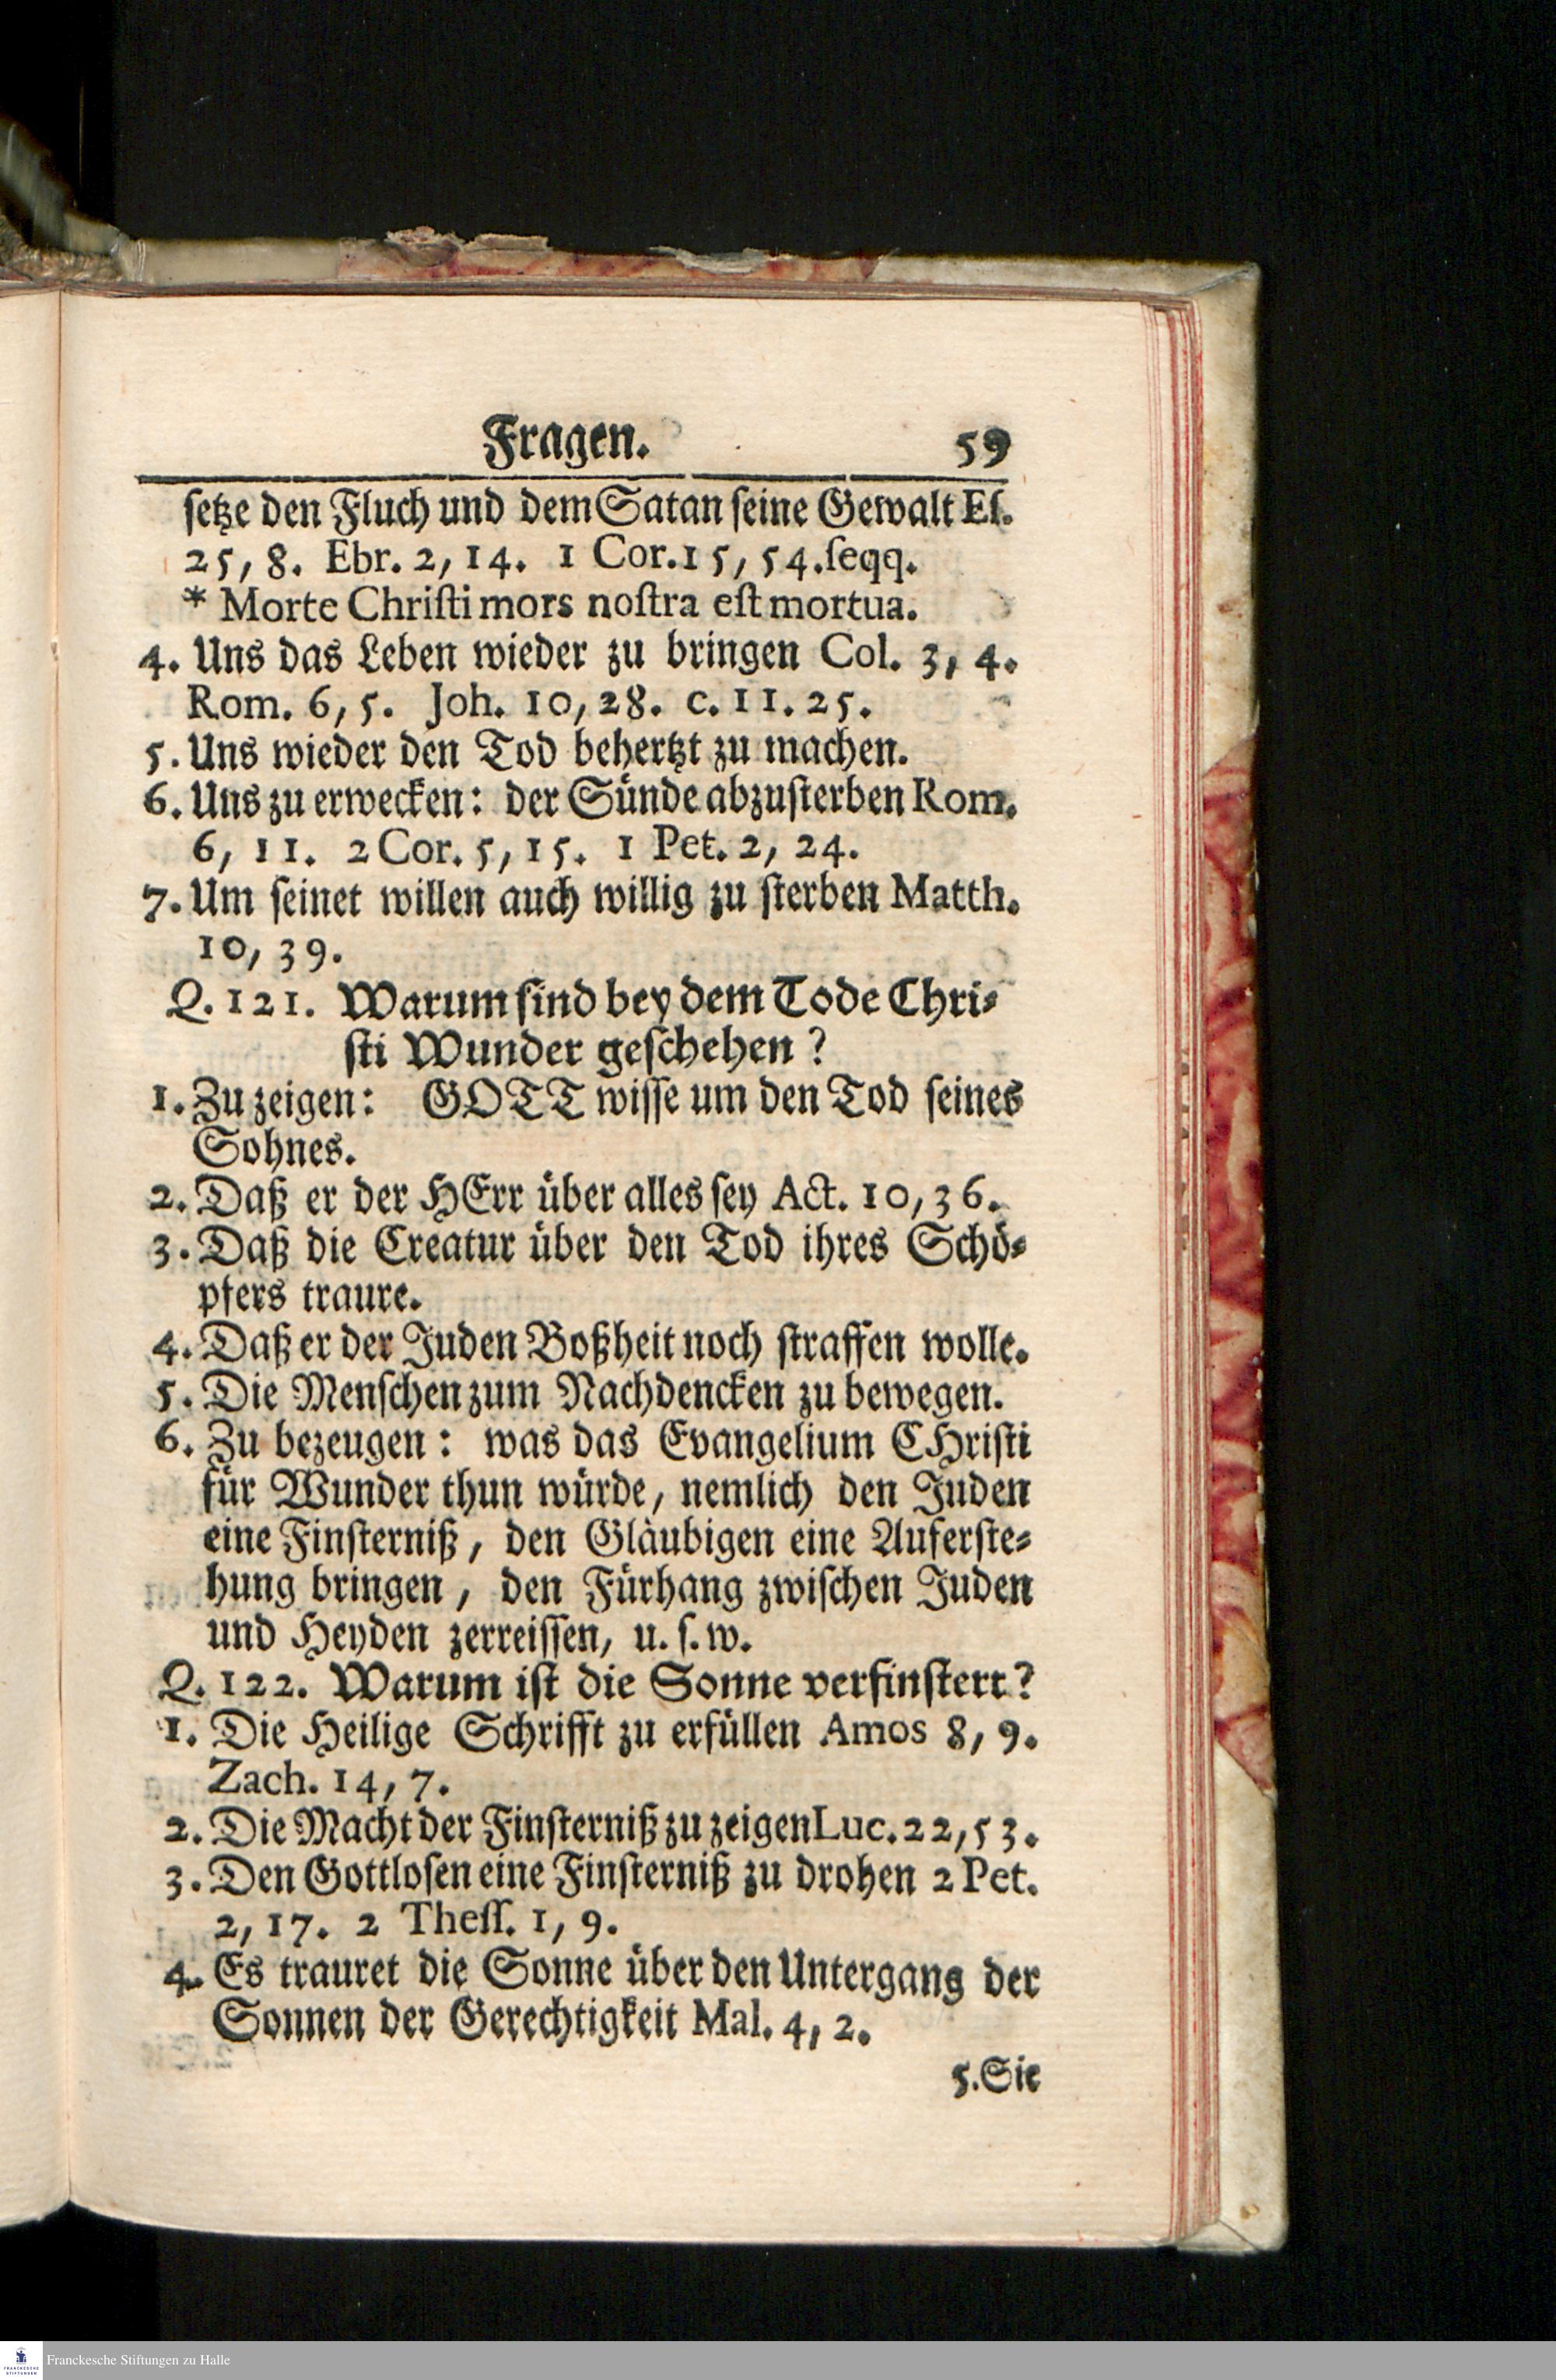 Fragen. 59
ſetze den Fluch und dem Satan ſeine Gewalt Eſ.
25, 8. Ebr. 2, 14. 1 Cor. 15, 54. ſeqq.
* Morte Chriſti mors noſtra eſt mortua.
4. Uns das Leben wieder zu bringen Col. 3, 4.
Rom. 6, 5. Joh. 10, 28. c. 11. 25.
5. Uns wieder den Tod behertzt zu machen.
6. Uns zu erwecken: der Sünde abzuſterben Rom.
6, 11. 2 Cor. 5, 15. 1 Pet. 2, 24.
7. Um ſeinet willen auch willig zu ſterben Matth.
10, 39.
Q. 121. Warum ſind bey dem Tode Chri⸗
ſti Wunder geſchehen?
1. Zu zeigen: GOTT wiſſe um den Tod ſeines
Sohnes.
2. Daß er der HErr über alles ſey Act. 10, 36.
3. Daß die Creatur über den Tod ihres Schö⸗
pfers traure.
4. Daß er der Juden Boßheit noch ſtraffen wolle.
5. Die Menſchen zum Nachdencken zu bewegen.
6. Zu bezeugen: was das Evangelium CHriſti
für Wunder thun würde, nemlich den Juden
eine Finſterniß, den Gläubigen eine Auferſte⸗
hung bringen, den Fürhang zwiſchen Juden
und Heyden zerreiſſen, u. ſ. w.
Q. 122. Warum iſt die Sonne verfinſtert?
1. Die Heilige Schrifft zu erfüllen Amos 8, 9.
Zach. 14, 7.
2. Die Macht der Finſterniß zu zeigen Luc. 22, 53.
3. Den Gottloſen eine Finſterniß zu drohen 2 Pet.
2, 17. 2 Theſſ. 1, 9.
4. Es trauret die Sonne über den Untergang der
Sonnen der Gerechtigkeit Mal. 4, 2.
5. Sie
FRANCKESCHE
STIFTUNGEN
Franckesche Stiftungen zu Halle